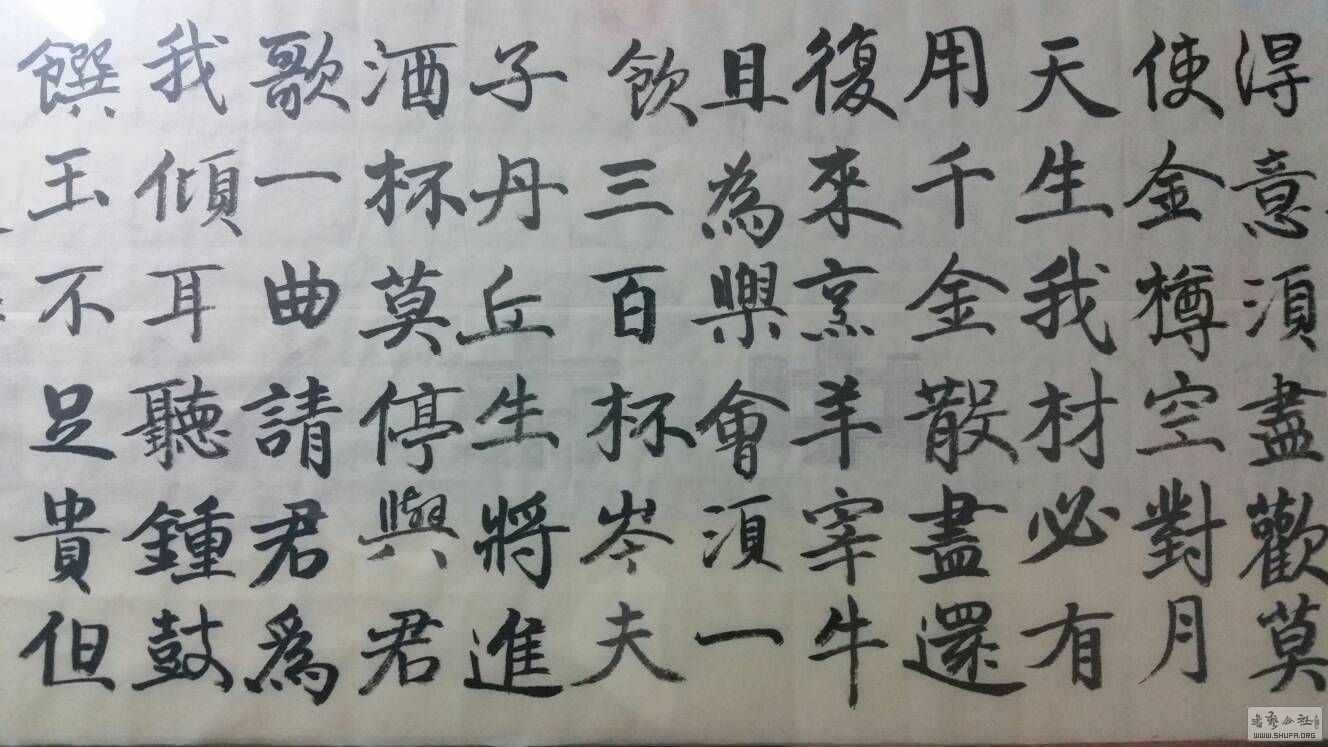 得意須盡歡莫
使金樽空對月
天生我材必有
用千金散盡還
復來烹羊宰牛
且為樂會須一
飲三百杯岑夫
子丹丘生將進
酒杯莫停與君
歌一曲請君爲
我傾耳聽鍾鼓
饌玉不足貴但
書藝公社
WWW.SHUFA.ORG